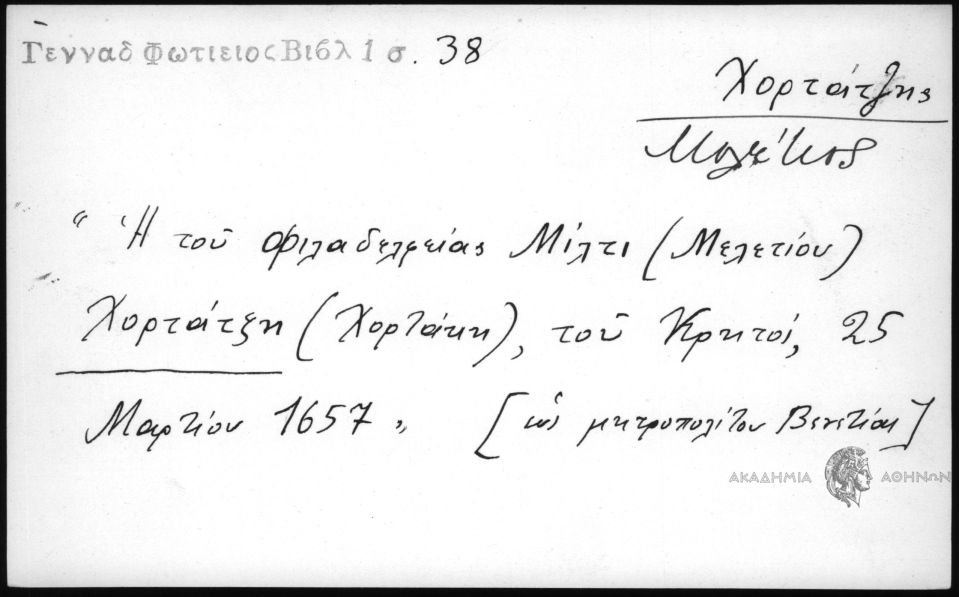 Γενναδ Φωτιειος Βιβλ 1 σ. 38
Χορτάτζης
Μελέτιος
"Ἡ τοῦ Φιλαδελφείας Μίλτι (Μελετίου)
Χορτάτζη (Χορτάκη), τοῦ Κρητός, 25
Μαρτίου 1657" [ὡς μητροπολίτου Βενετίας]
ΑΚΑΔΗΜΙΑ ΑΘΗΝΩΝ